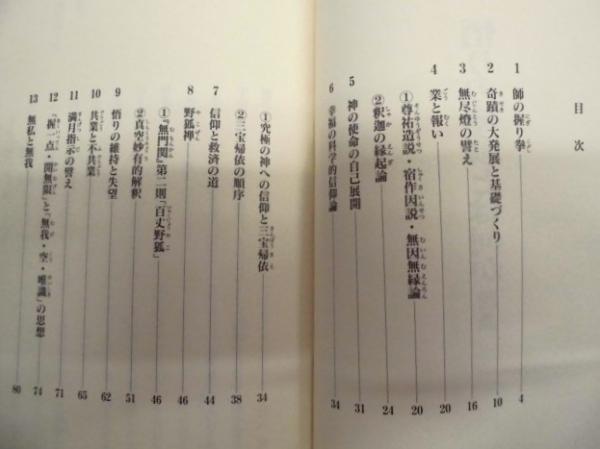 目次
1 師の握り拳 4
2 奇蹟の大発展と基礎づくり 10
3 無尽燈の譬え 16
4 業と報い 20
①尊祐造説・宿作因説・無因無縁論 20
②釈迦の縁起論 24
5 神の使命の自己展開 31
6 幸福の科学的信仰論 34
①究極の神への信仰と三宝帰依 34
②三宝帰依の順序 38
7 信仰と救済の道 44
8 野狐禅 46
①『無門関』第二則「百丈野狐」 46
②真空妙有的解釈 51
9 悟りの維持と失望 62
10 共業と不共業 65
11 満月指示の譬え 71
12 「握一点・開無限」と「無我・空・唯識」の思想 74
13 無私と無我 80